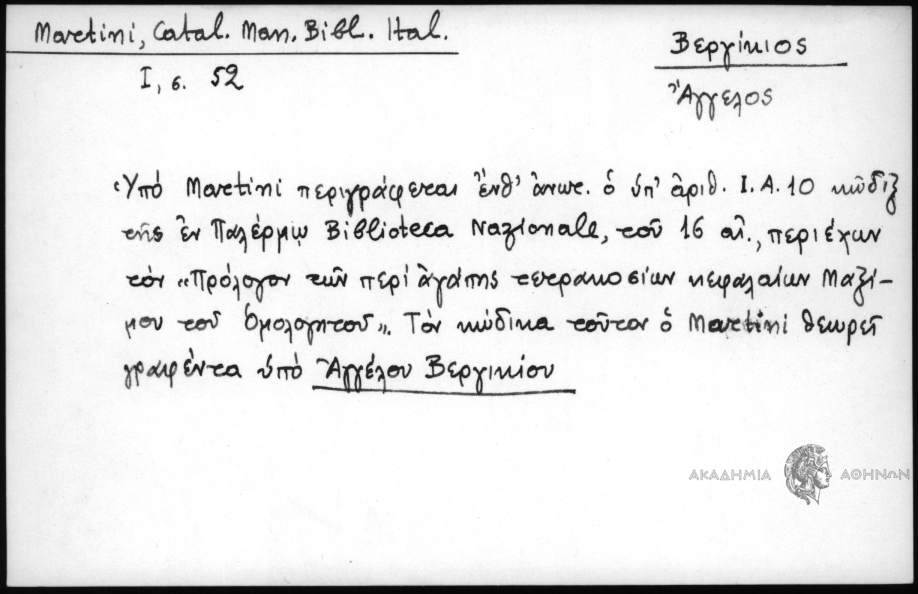 Martini, Catal. Man. Bibl. Ital.
I, σ. 52
Βεργίκιος
Ἄγγελος
Ὑπό Martini περιγράφεται ἔνθ' ἀνωτ. ὁ ὑπ' ἀριθ. I.A.10 κῶδιξ
τῆς ἐν Παλέρμῳ Biblioteca Nazionale, τοῦ 16 αἰ., περιέχων
τόν «Πρόλογον τῶν περί ἀγάπης τετρακοσίων κεφαλαίων Μαξί-
μου τοῦ Ὁμολογητοῦ». Τόν κώδικα τοῦτον ὁ Martini θεωρεῖ
γραφέντα ὑπό Ἀγγέλου Βεργικίου
ΑΚΑΔΗΜΙΑ ΑΘΗΝΩΝ